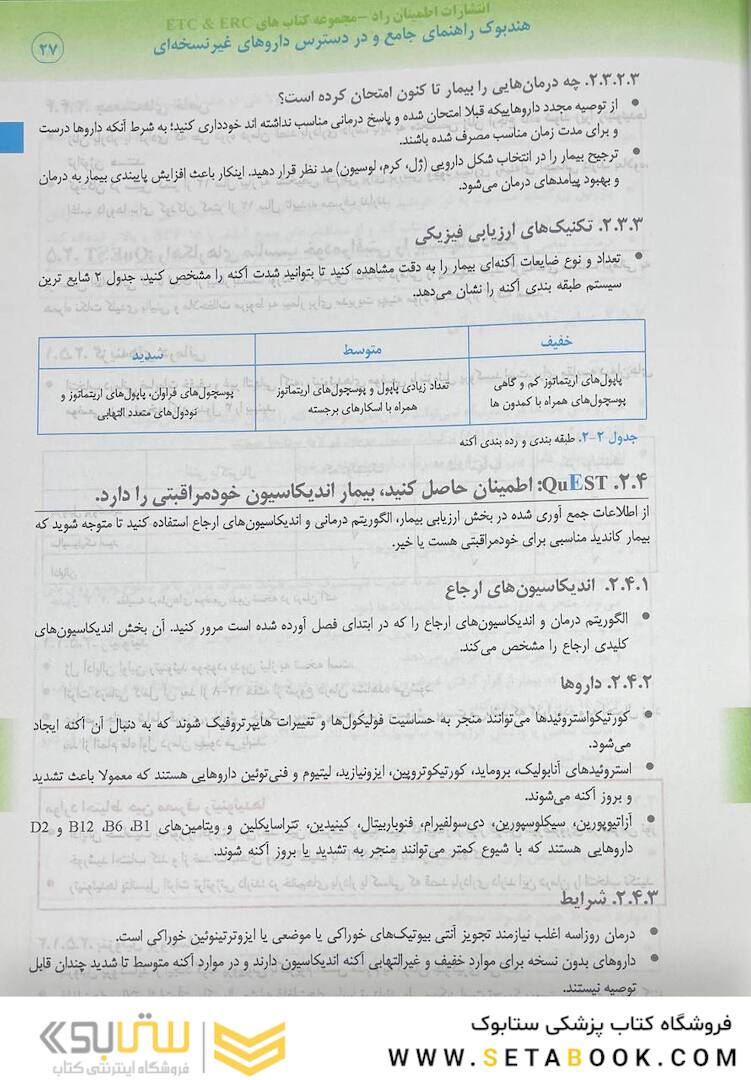 انتشارات اطمینان راد –مجموعه کتاب های ETC & ERC
هندبوک راهنمای جامع و در دسترس داروهای غیرنسخه‌ای
۲۷
۲.۳.۲.۳. چه درمان‌هایی را بیمار تا کنون امتحان کرده است؟
• از توصیه مجدد داروهاییکه قبلا امتحان شده و پاسخ درمانی مناسب نداشته اند خودداری کنید؛ به شرط آنکه داروها درست
و برای مدت زمان مناسب مصرف شده باشند.
• ترجیح بیمار را در انتخاب شکل دارویی (ژل، کرم، لوسیون) مد نظر قرار دهید. اینکار باعث افزایش پایبندی بیمار به درمان
و بهبود پیامدهای درمان می‌شود.
۲.۳.۳. تکنیک‌های ارزیابی فیزیکی
• تعداد و نوع ضایعات آکنه‌ای بیمار را به دقت مشاهده کنید تا بتوانید شدت آکنه را مشخص کنید. جدول ۲ شایع ترین
سیستم طبقه بندی آکنه را نشان می‌دهد.
خفیف متوسط شدید
پاپول‌های اریتماتوز کم و گاهی تعداد زیادی پاپول و پوسچول‌های اریتماتوز پوسچول‌های فراوان، پاپول‌های اریتماتوز و
پوسچول‌های همراه با کمدون ها همراه با اسکارهای برجسته نودول‌های متعدد التهابی
جدول ۲-۲. طبقه بندی و رده بندی آکنه
۲.۴. QuEST: اطمینان حاصل کنید، بیمار اندیکاسیون خودمراقبتی را دارد.
از اطلاعات جمع آوری شده در بخش ارزیابی بیمار، الگوریتم درمانی و اندیکاسیون‌های ارجاع استفاده کنید تا متوجه شوید که
بیمار کاندید مناسبی برای خودمراقبتی هست یا خیر.
۲.۴.۱. اندیکاسیون‌های ارجاع
• الگوریتم درمان و اندیکاسیون‌های ارجاع را که در ابتدای فصل آورده شده است مرور کنید. آن بخش اندیکاسیون‌های
کلیدی ارجاع را مشخص می‌کند.
۲.۴.۲. داروها
• کورتیکواستروئیدها می‌توانند منجر به حساسیت فولیکول‌ها و تغییرات هایپرتروفیک شوند که به دنبال آن آکنه ایجاد
می‌شود.
• استروئیدهای آنابولیک، بروماید، کورتیکوتروپین، ایزونیازید، لیتیوم و فنی‌توئین داروهایی هستند که معمولا باعث تشدید
و بروز آکنه می‌شوند.
• آزاتیوپورین، سیکلوسپورین، دی‌سولفیرام، فنوباربیتال، کینیدین، تتراسایکلین و ویتامین‌های B1، B6، B12 و D2
داروهایی هستند که با شیوع کمتر می‌توانند منجر به تشدید یا بروز آکنه شوند.
۲.۴.۳. شرایط
• درمان روزاسه اغلب نیازمند تجویز آنتی بیوتیک‌های خوراکی یا موضعی یا ایزوترتینوئین خوراکی است.
• داروهای بدون نسخه برای موارد خفیف و غیرالتهابی آکنه اندیکاسیون دارند و در موارد آکنه متوسط تا شدید چندان قابل
توصیه نیستند.
فروشگاه کتاب پزشکی ستابوک
WWW.SETABOOK.COM
ستابوک
فروشگاه اینترنتی کتاب